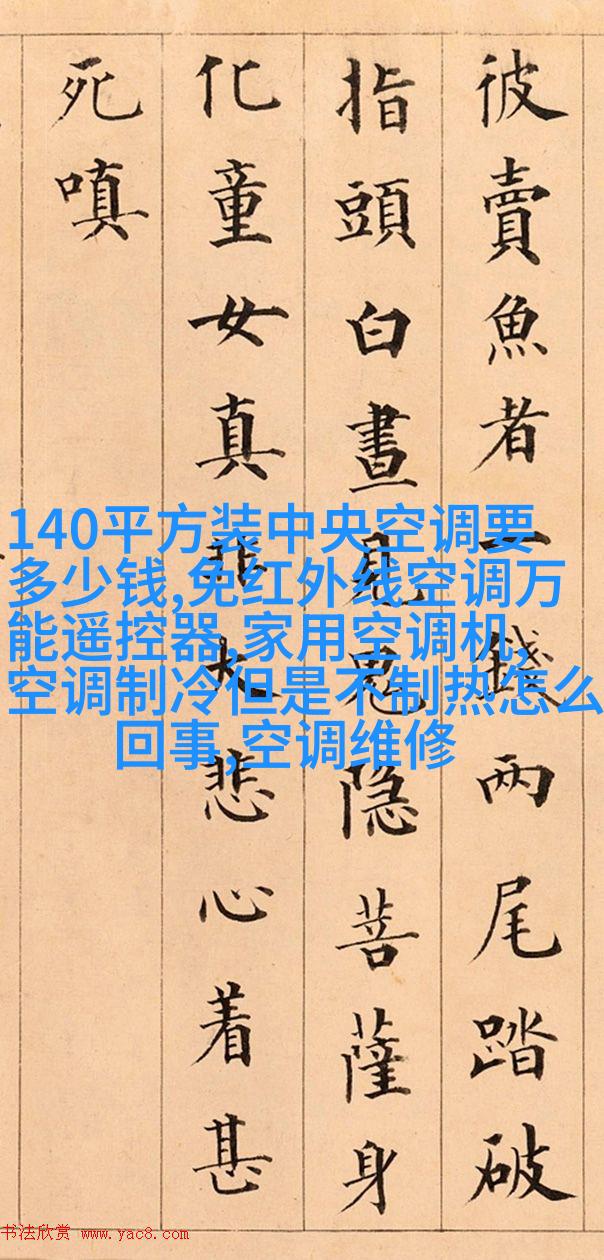 彼賣魚者一錢兩尾踏破
指頭白晝見鬼隐菩薩身
化童女真大悲心着甚
死嗔
140平方装中央空调要
多少钱,免红外线空调万
能遥控器,家用空调机,
空调制冷但是不制热怎么
回事,空调维修
书法欣赏 www.yac8.com